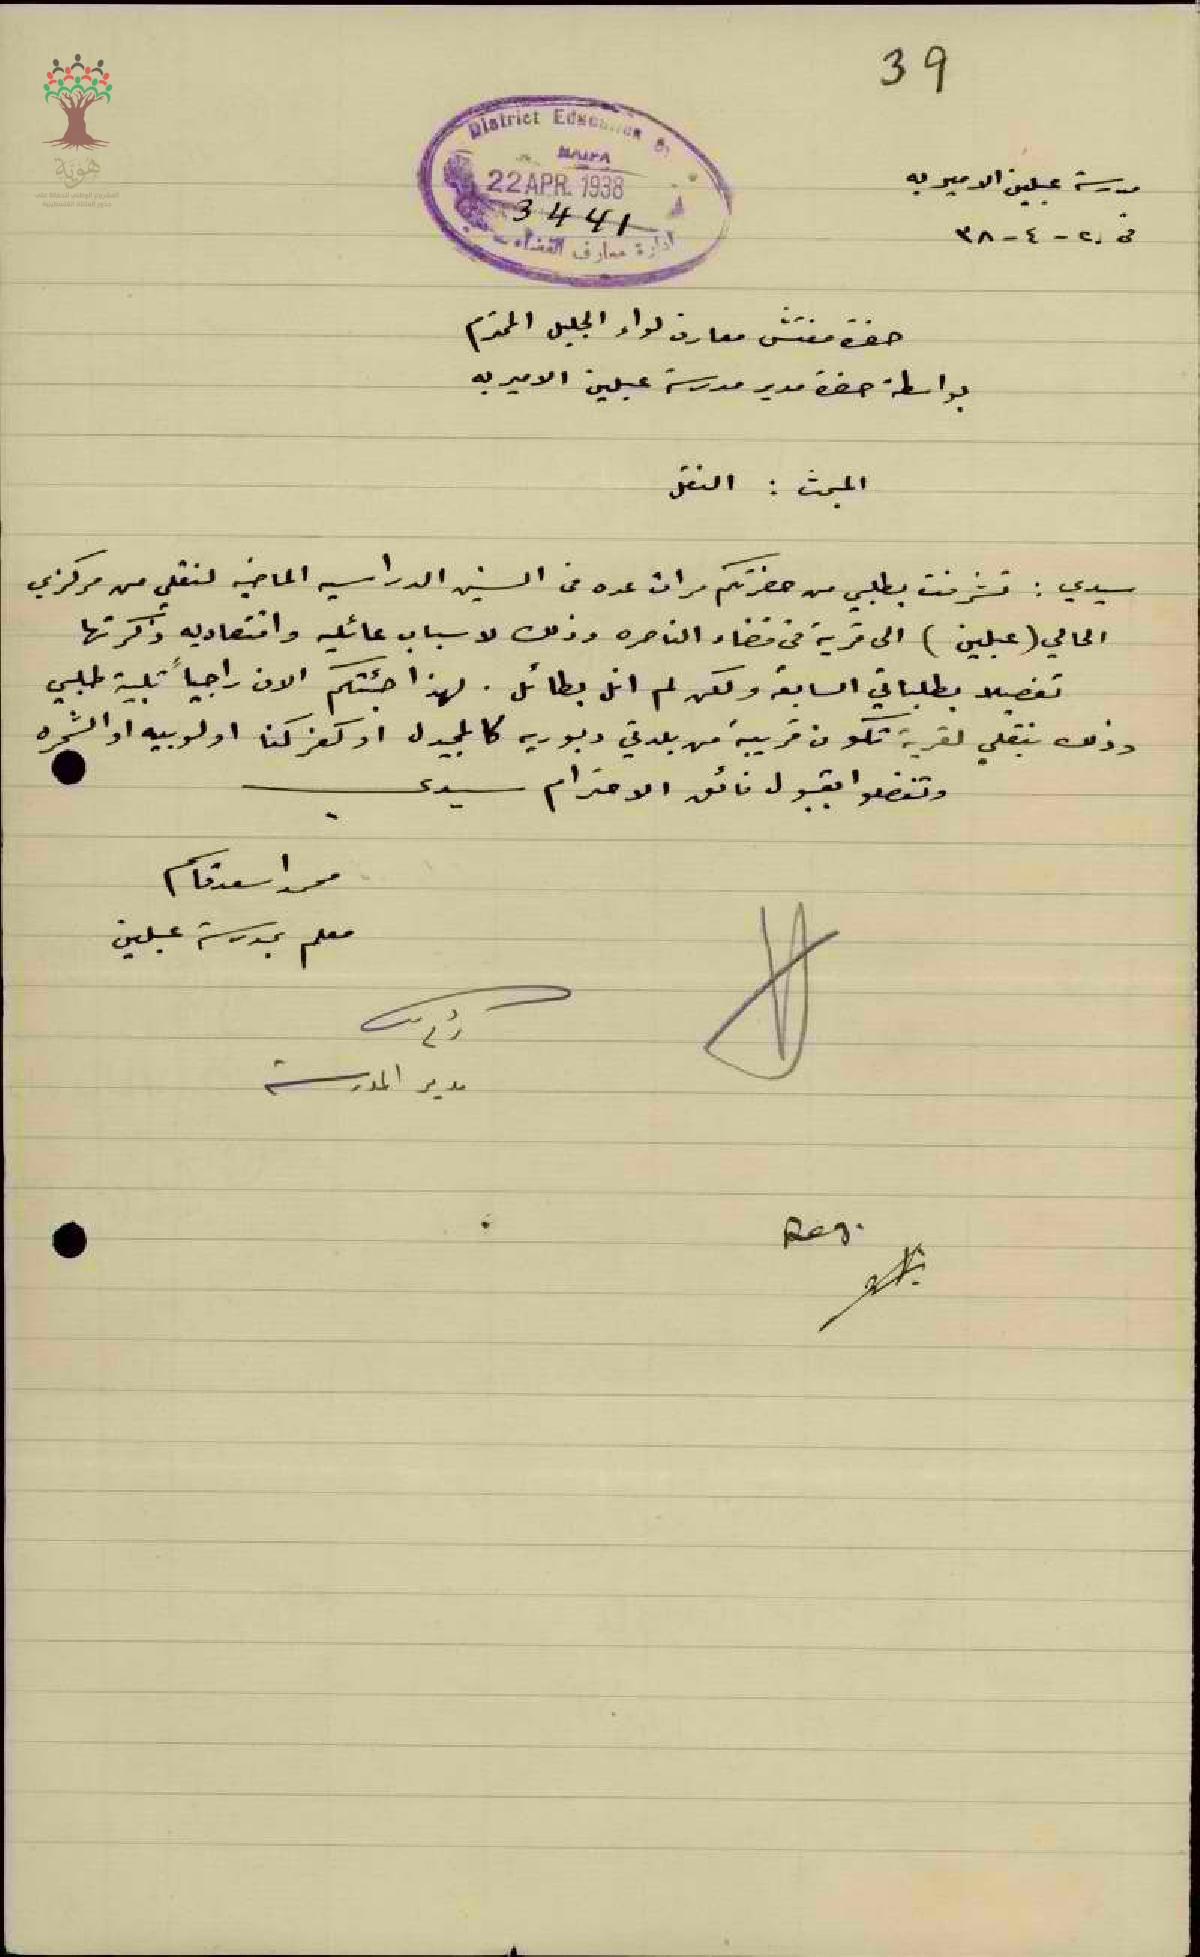 39
District Education
HAIFA
22 APR. 1938
3441
ادارة معارف القضاء
هوية
مدرسة عبلين الاميريه
في ٢٠ - ٤ - ٣٨
حضرة مفتش معارف لواء الجليل المحترم
بواسطة حضرة مدير مدرسة عبلين الاميريه
المبحث : النقل
سيدي : تشرفت بطلبي من حضرتكم مرات عده في السنين الدراسيه الماضيه لنقلي من مركزي
الحالي (عبلين) الى قرية في قضاء الناصره وذلك لاسباب عائليه واقتصاديه ذكرتها
تفصيلا بطلباتي السابقة ولكن لم انل بطائل . لهذا جئتكم الان راجياً تلبية طلبي
وذلك بنقلي لقرية تكون قريبة من بلدتي دبوريه كالمجيدل او كفركنا او لوبيه او الشجره
وتفضلوا بقبول فائق الاحترام سيدي
محمد اسعد قاسم
معلم بمدرسة عبلين
مدير المدرسة
Reg.